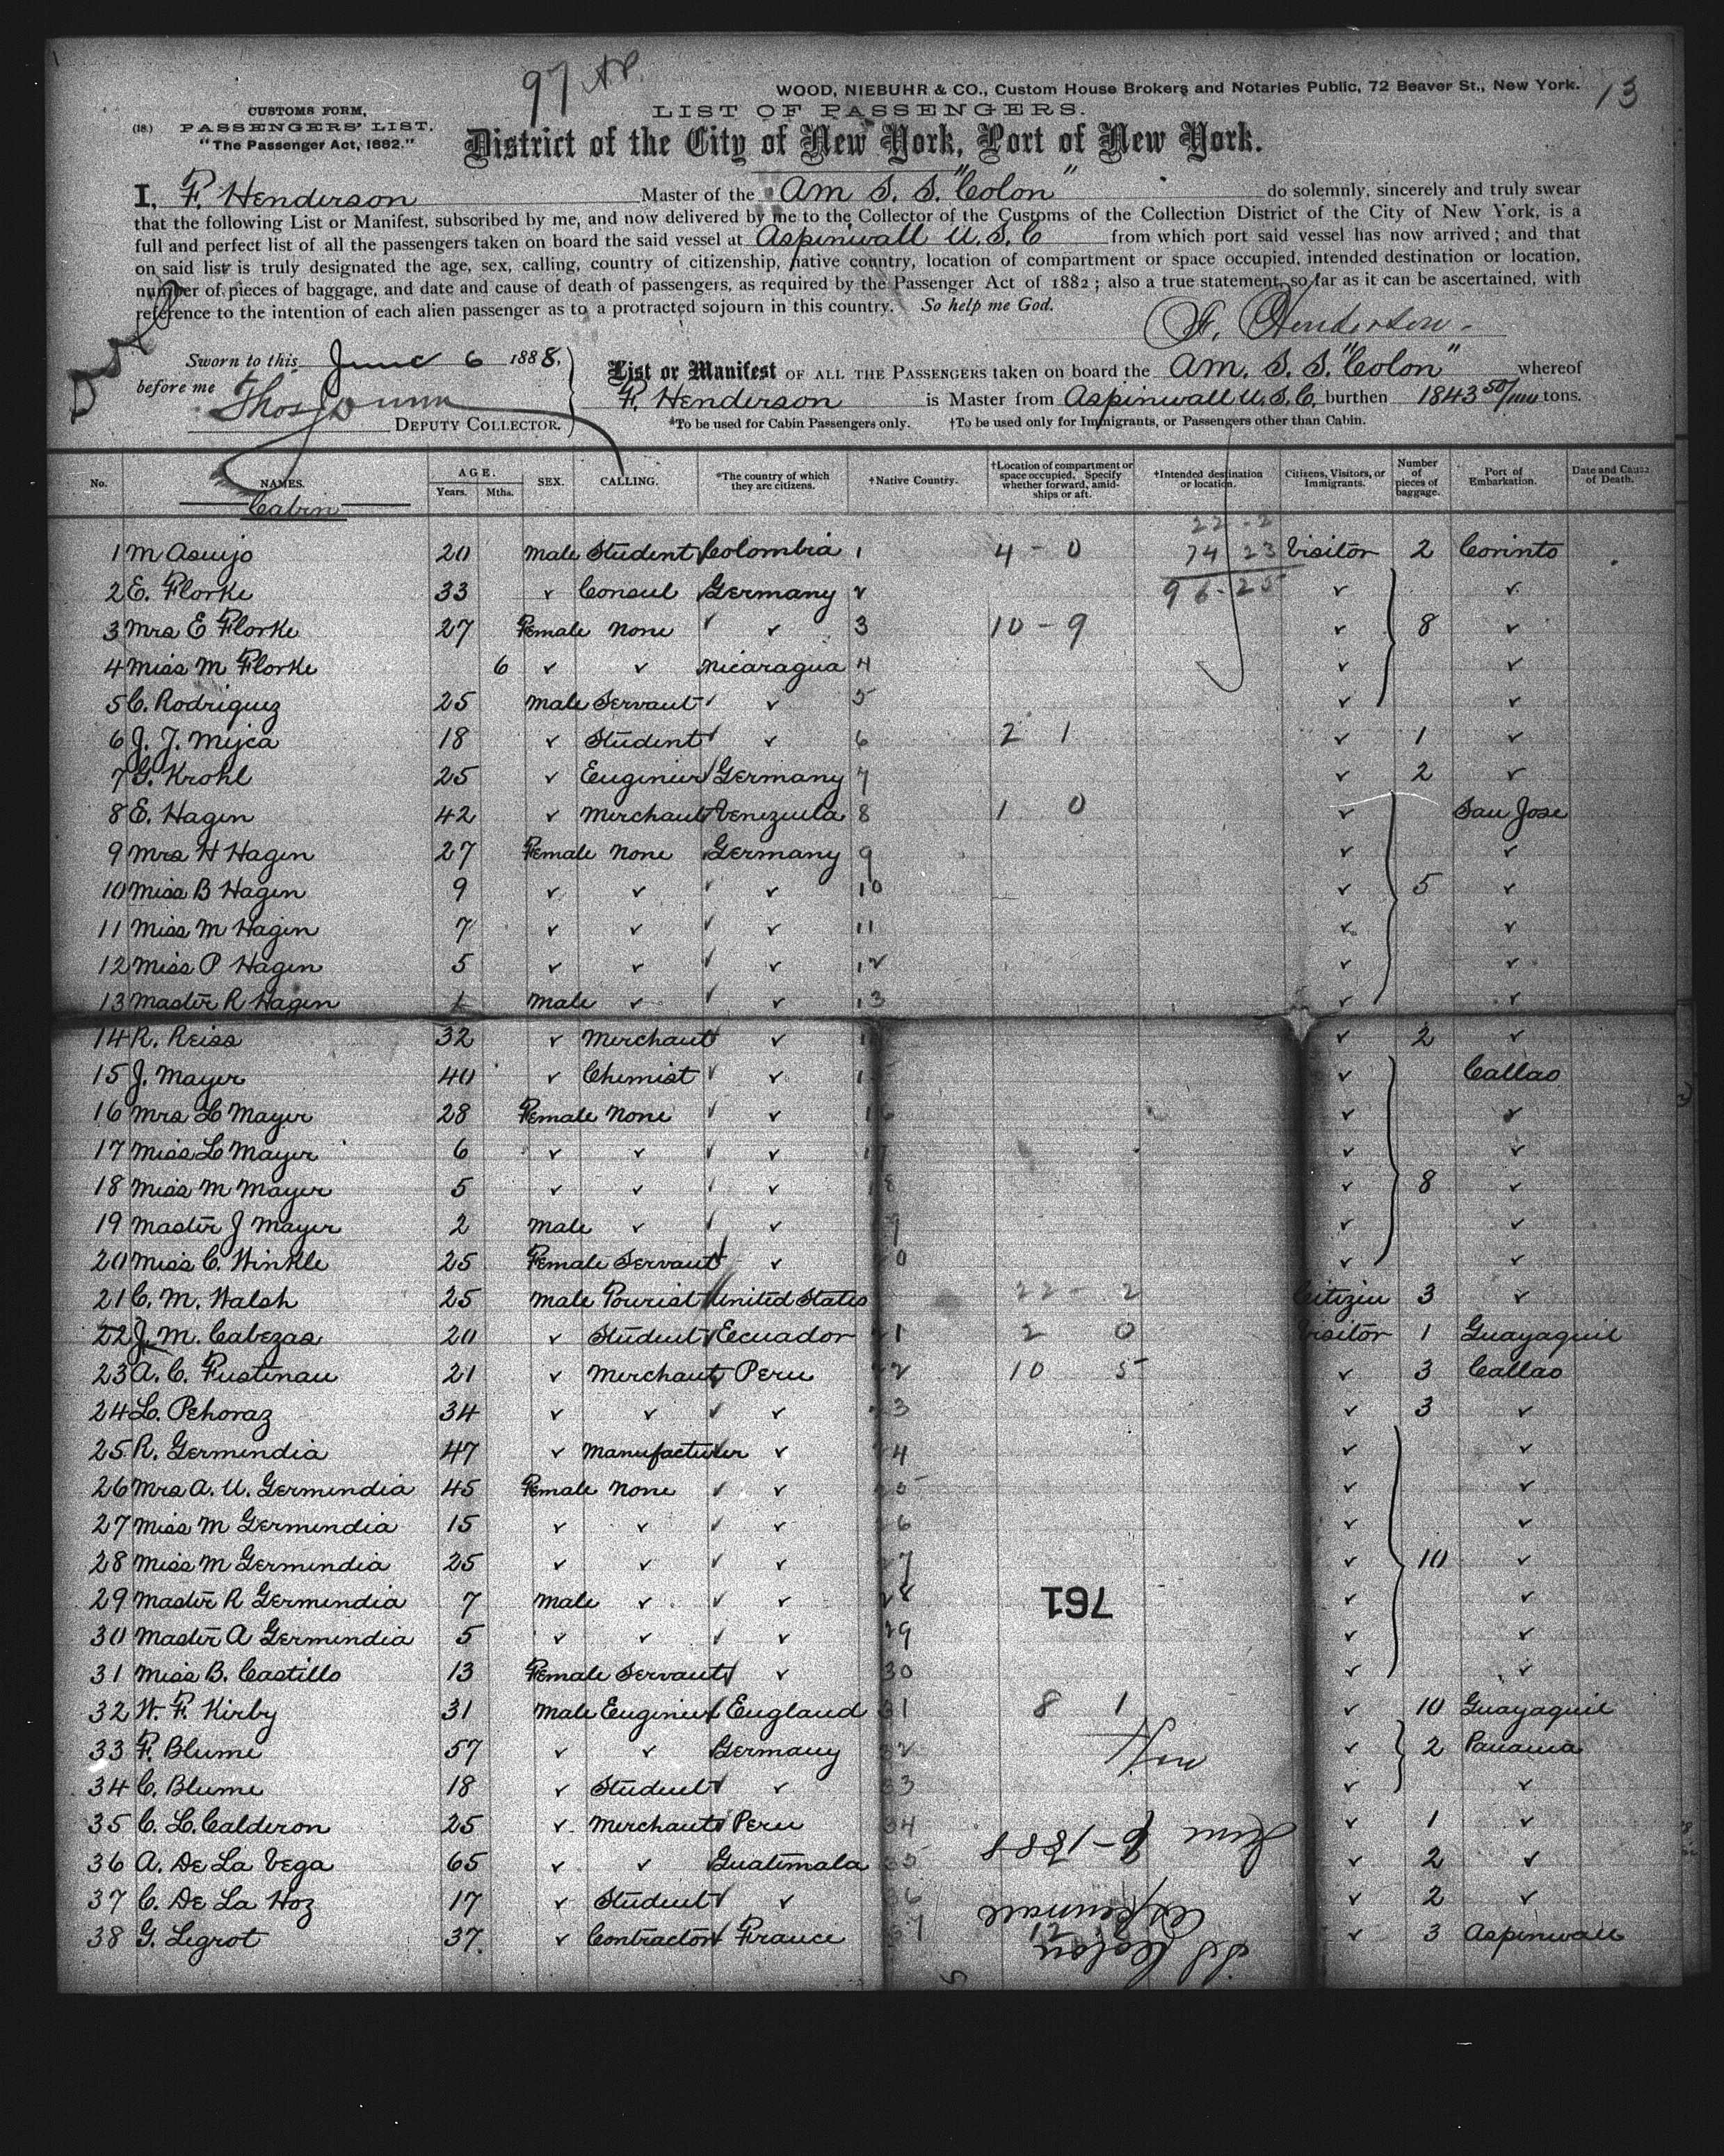 97
WOOD, NIEBUHR & CO., Custom House Brokers and Notaries Public, 72 Beaver St., New York.
13
CUSTOMS FORM,
LIST OF PASSENGERS.
(18.) PASSENGERS' LIST.
"The Passenger Act, 1882."
District of the City of New York, Port of New York.
I, F. Henderson Master of the Am S. S. "Colon" do solemnly, sincerely and truly swear
that the following List or Manifest, subscribed by me, and now delivered by me to the Collector of the Customs of the Collection District of the City of New York, is a
full and perfect list of all the passengers taken on board the said vessel at Aspinwall U.S.C from which port said vessel has now arrived; and that
on said list is truly designated the age, sex, calling, country of citizenship, native country, location of compartment or space occupied, intended destination or location,
number of pieces of baggage, and date and cause of death of passengers, as required by the Passenger Act of 1882; also a true statement, so far as it can be ascertained, with
reference to the intention of each alien passenger as to a protracted sojourn in this country. So help me God.
F. Henderson
Sworn to this June 6 1888.
before me Thos J Dunn
DEPUTY COLLECTOR.
List or Manifest OF ALL THE PASSENGERS taken on board the Am. S. S. "Colon" whereof
F. Henderson is Master from Aspinwall U.S.C. burthen 1843 50/100 tons.
*To be used for Cabin Passengers only. †To be used only for Immigrants, or Passengers other than Cabin.
No. NAMES. AGE. Years. Mths. SEX. CALLING. *The country of which they are citizens. †Native Country. †Location of compartment or space occupied. Specify whether forward, amidships or aft. †Intended destination or location. Citizens, Visitors, or Immigrants. Number of pieces of baggage. Port of Embarkation. Date and Cause of Death.
Cabin
22-2
1 M Asuijo 20 Male Student Colombia 1 4-0 74 23 Visitor 2 Corinto
2 E. Florke 33 ✓ Consul Germany 2 96-25 ✓ ✓
3 Mrs E Florke 27 Female None ✓ ✓ 3 10-9 ✓ 8 ✓
4 Miss M Florke 6 ✓ ✓ Nicaragua 4 ✓ ✓
5 C. Rodriguez 25 Male Servant ✓ ✓ 5 ✓ ✓
6 J. J. Mejca 18 ✓ Student ✓ ✓ 6 2 1 ✓ 1 ✓
7 G. Krohl 25 ✓ Engineer Germany 7 ✓ 2 ✓
8 E. Hagen 42 ✓ Merchant Venezuela 8 1 0 ✓ San Jose
9 Mrs H Hagen 27 Female None Germany 9 ✓ ✓
10 Miss B Hagen 9 ✓ ✓ ✓ ✓ 10 ✓ 5 ✓
11 Miss M Hagen 7 ✓ ✓ ✓ ✓ 11 ✓ ✓
12 Miss P Hagen 5 ✓ ✓ ✓ ✓ 12 ✓ ✓
13 Master R Hagen 1 Male ✓ ✓ ✓ 13 ✓ ✓
14 R. Reiss 32 ✓ Merchant ✓ ✓ 2 ✓
15 J. Mayer 40 ✓ Chemist ✓ ✓ ✓ Callao
16 Mrs L Mayer 28 Female None ✓ ✓ 16 ✓ ✓
17 Miss L Mayer 6 ✓ ✓ ✓ ✓ 17 ✓ ✓
18 Miss M Mayer 5 ✓ ✓ ✓ ✓ 18 ✓ 8 ✓
19 Master J Mayer 2 Male ✓ ✓ ✓ 19 ✓ ✓
20 Miss C. Winkle 25 Female Servant ✓ ✓ 20 ✓ ✓
21 C. M. Walsh 25 Male Tourist United States 22-2 Citizen 3 ✓
22 J. M. Cabezas 20 ✓ Student Ecuador 21 2 0 Visitor 1 Guayaquil
23 A. C. Fustenau 21 ✓ Merchant Peru 22 10 5 ✓ 3 Callao
24 L. Pehoraz 34 ✓ ✓ ✓ ✓ 23 ✓ 3 ✓
25 R. Germendia 47 ✓ Manufacturer ✓ 24 ✓ ✓
26 Mrs A. U. Germendia 45 Female None ✓ ✓ 25 ✓ ✓
27 Miss M Germendia 15 ✓ ✓ ✓ ✓ 26 ✓ ✓
28 Miss M Germendia 25 ✓ ✓ ✓ ✓ 27 ✓ 10 ✓
29 Master R Germendia 7 Male ✓ ✓ ✓ 28 761 ✓ ✓
30 Master A Germendia 5 ✓ ✓ ✓ ✓ 29 ✓ ✓
31 Miss B. Castillo 13 Female Servant ✓ ✓ 30 ✓ ✓
32 W. F. Kirby 31 Male Engineer England 31 8 1 ✓ 10 Guayaquil
33 F. Blume 57 ✓ ✓ Germany 32 ✓ 2 Panama
34 C. Blume 18 ✓ Student ✓ ✓ 33 ✓ ✓
35 C. L. Calderon 25 ✓ Merchant Peru 34 ✓ 1 ✓
36 A. De La Vega 65 ✓ ✓ Guatemala 35 ✓ 2 ✓
37 C. De La Hoz 17 ✓ Student ✓ ✓ 36 ✓ 2 ✓
38 G. Legrot 37 ✓ Contractor France 37 ✓ 3 Aspinwall
SS Colon
Aspinwall
June 6-1888